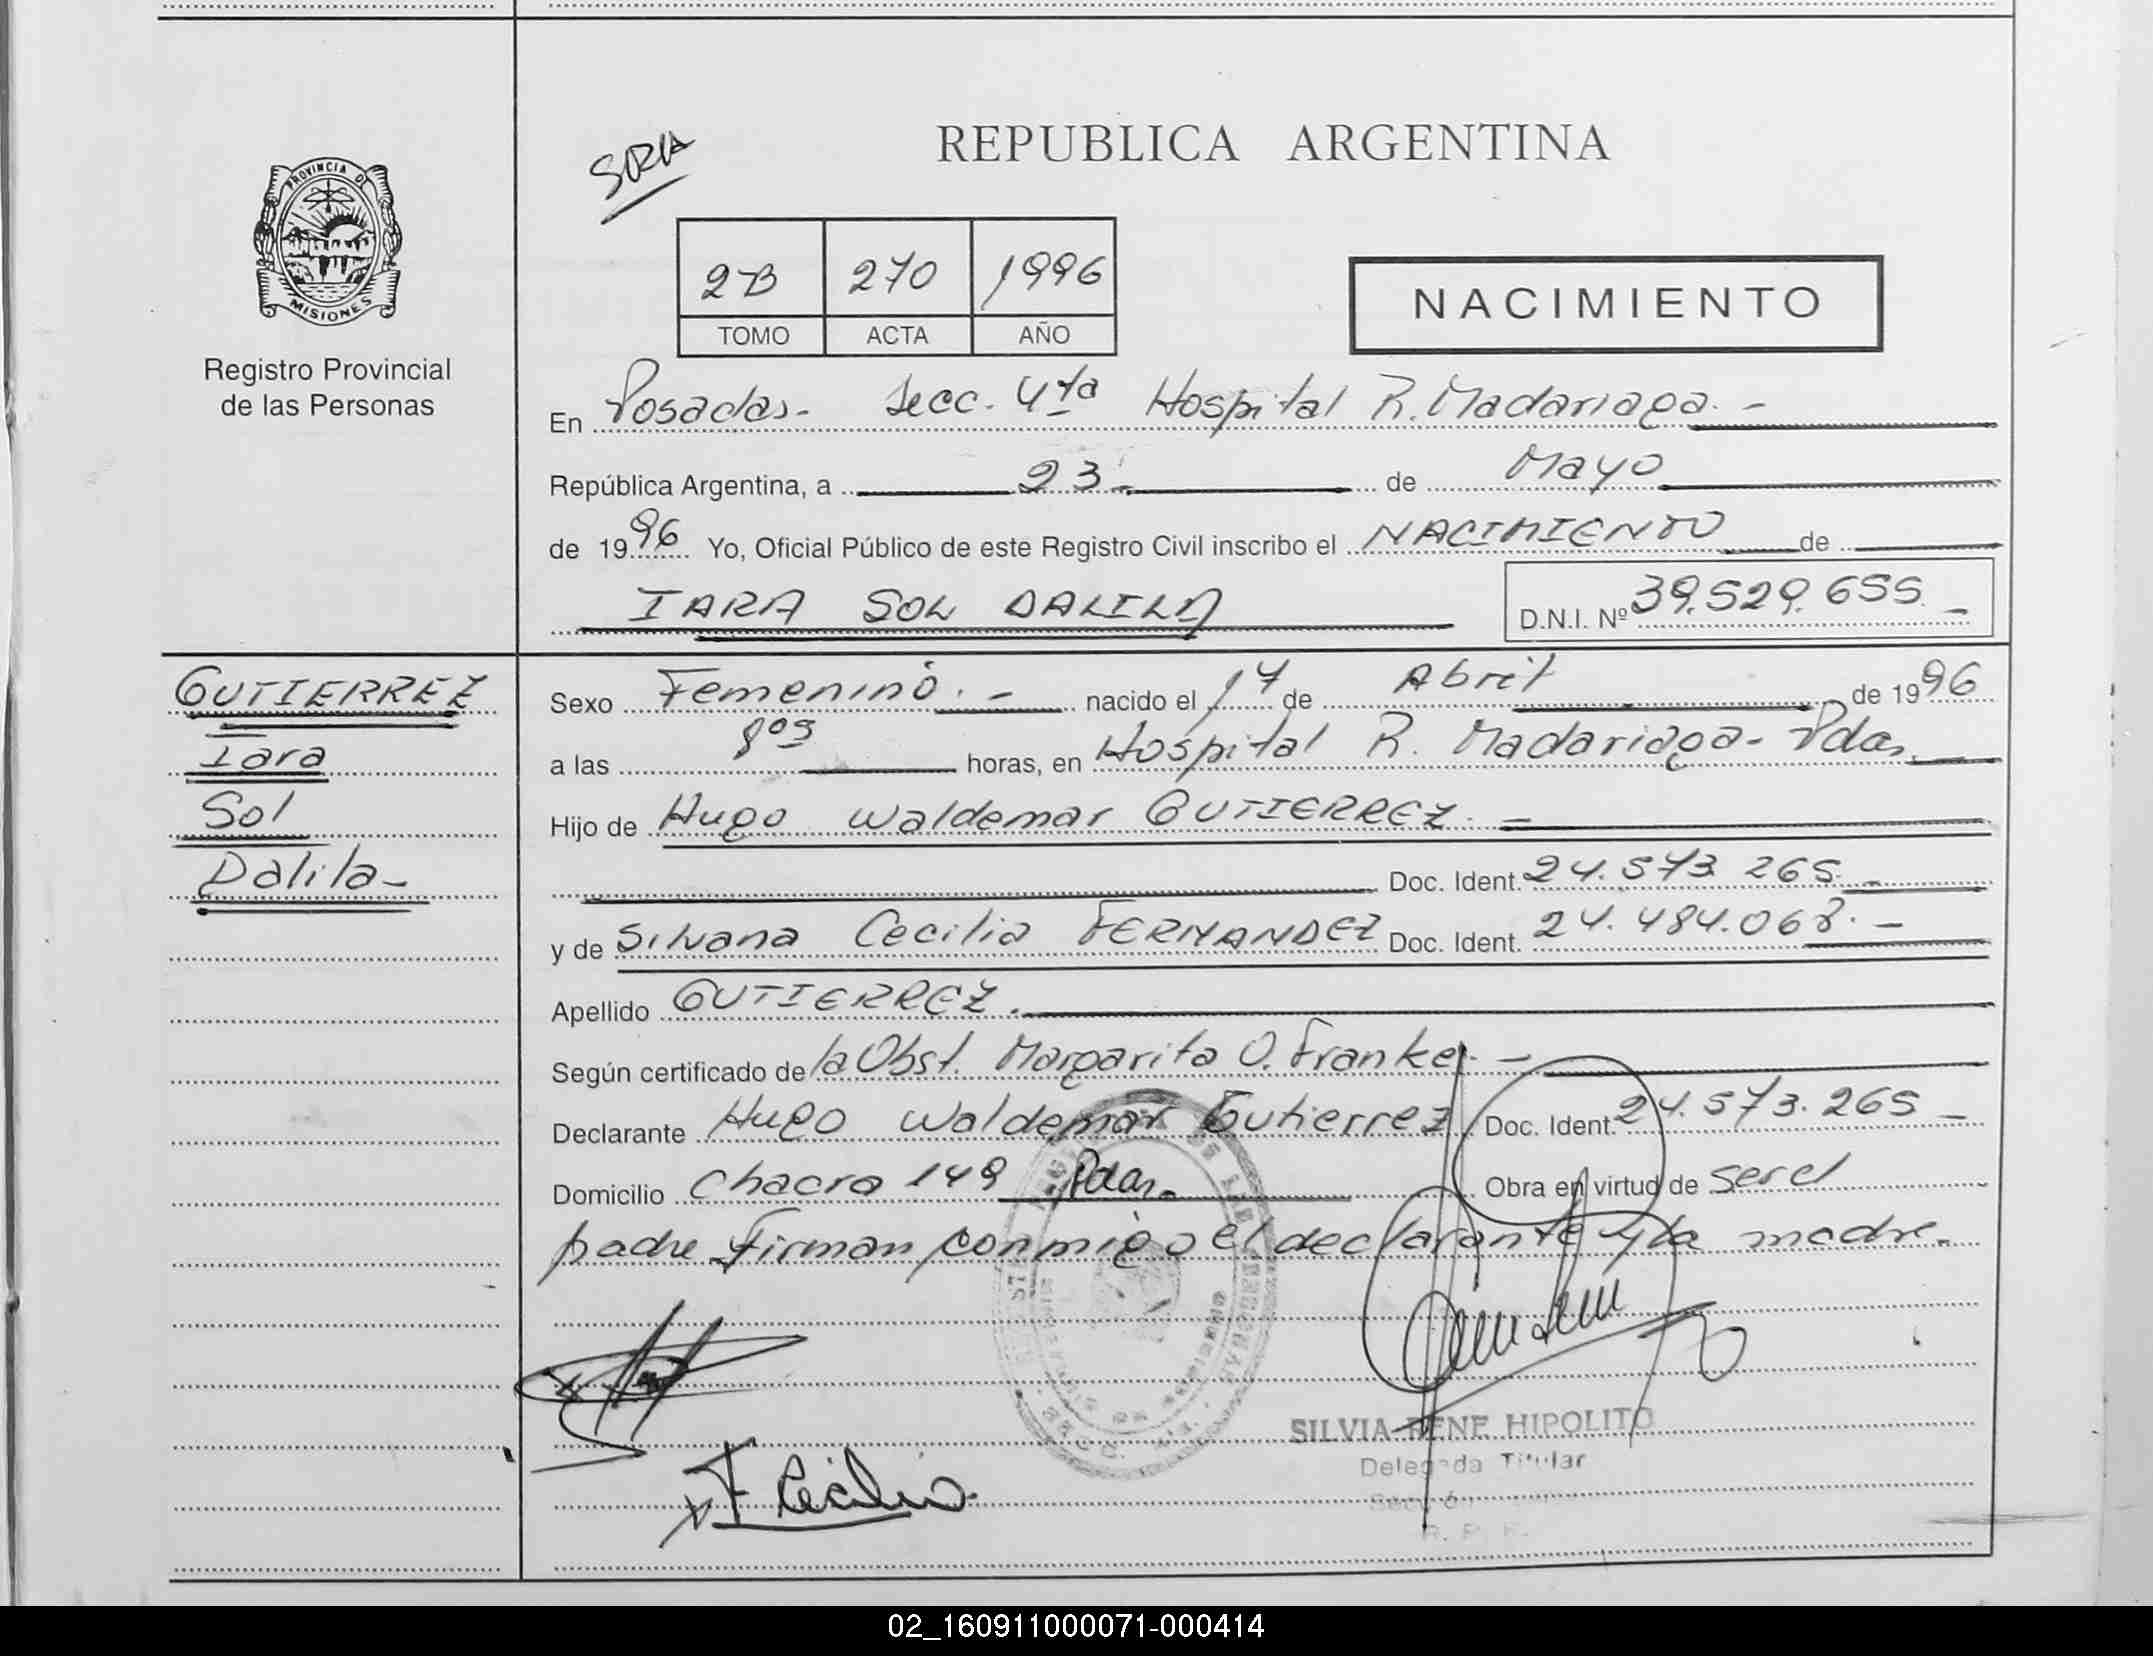 SRIA
REPUBLICA ARGENTINA
PROVINCIA DE
MISIONES
Registro Provincial
de las Personas
2-B 270 1996
TOMO ACTA AÑO
NACIMIENTO
En Posadas- Secc. 4ta Hospital R. Madariaga.-
República Argentina, a 23- de Mayo
de 1996 Yo, Oficial Público de este Registro Civil inscribo el NACIMIENTO de
IARA SOL DALILA
D.N.I. Nº 39.529.655-
GUTIERREZ
Iara
Sol
Dalila-
Sexo Femenino.- nacido el 17 de Abril de 1996
a las horas, en Hospital R. Madariaga- Pdas,
Hijo de Hugo Waldemar GUTIERREZ.-
Doc. Ident. 24.573.265.-
y de Silvana Cecilia FERNANDEZ Doc. Ident. 24.484.068.-
Apellido GUTIERREZ.
Según certificado de la Obst. Margarita O. Franke.-
Declarante Hugo Waldemar Gutierrez Doc. Ident. 24.573.265-
Domicilio Chacra 149 Pdas.
Obra en virtud de ser el
padre Firman conmigo el declarante y la madre.-
F Cecilia
SILVIA RENE HIPOLITO
Delegada Titular
02_160911000071-000414